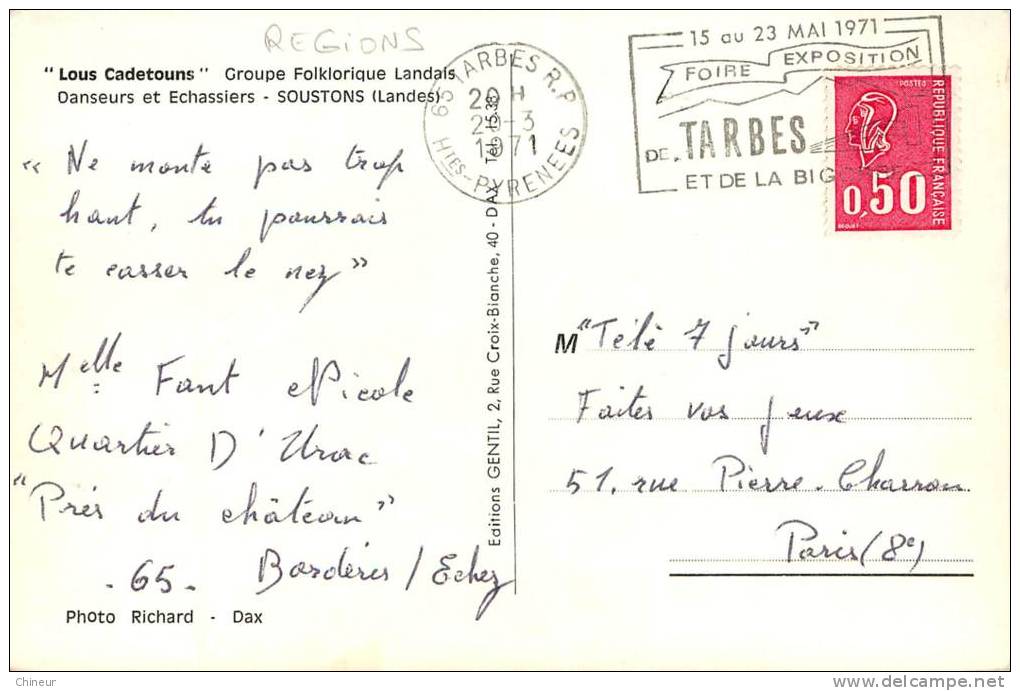 REGIONS
"Lous Cadetouns" Groupe Folklorique Landais
Danseurs et Echassiers - SOUSTONS (Landes)
« Ne monte pas trop
haut, tu pourrais
te casser le nez »
Melle Fant Nicole
Quartier D'Urac
"Près du château"
- 65 - Bordères / Echez
Photo Richard - Dax
Editions GENTIL, 2, Rue Croix-Blanche, 40 - DAX Tél. 15.38
65 TARBES R.P.
20 H
-3
1971
HTES-PYRENEES
15 au 23 MAI 1971
FOIRE EXPOSITION
DE TARBES
ET DE LA BIG
POSTES
REPUBLIQUE FRANÇAISE
0,50
BEQUET
M "Télé 7 jours"
Faites vos jeux
51, rue Pierre-Charron
Paris (8e)
Chineur
www.delcampe.net